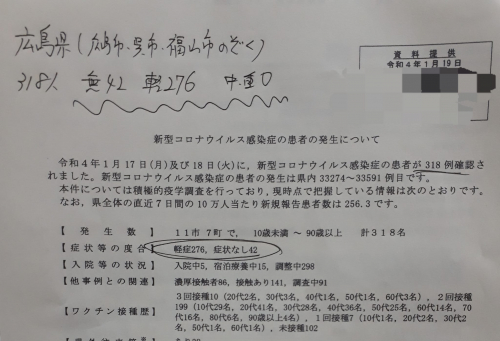 広島県(広島市・呉市・福山市のぞく)
318人 無42 軽276 中・重0
資料提供
令和4年1月19日
新型コロナウイルス感染症の患者の発生について
令和4年1月17日(月)及び18日(火)に、新型コロナウイルス感染症の患者が318例確認さ
れました。新型コロナウイルス感染症の患者の発生は県内33274~33591例目です。
本件については積極的疫学調査を行っており、現時点で把握している情報は次のとおりです。
なお、県全体の直近7日間の10万人当たり新規報告患者数は256.3です。
【発生数】 11市7町で、10歳未満~90歳以上 計318名
【症状等の度合】 軽症276、症状なし42
【入院等の状況】 入院中5、宿泊療養中15、調整中298
【他事例との関連】 濃厚接触者86、接触あり141、調査中91
3回接種10(20代2名、30代3名、40代1名、50代1名、60代3名)、2回接種
【ワクチン接種歴】 199(10代29名、20代41名、30代28名、40代36名、50代25名、60代14名、70
代16名、80代6名、90歳以上4名)、1回接種7(10代1名、20代2名、30代2
名、50代1名、60代1名)、未接種102